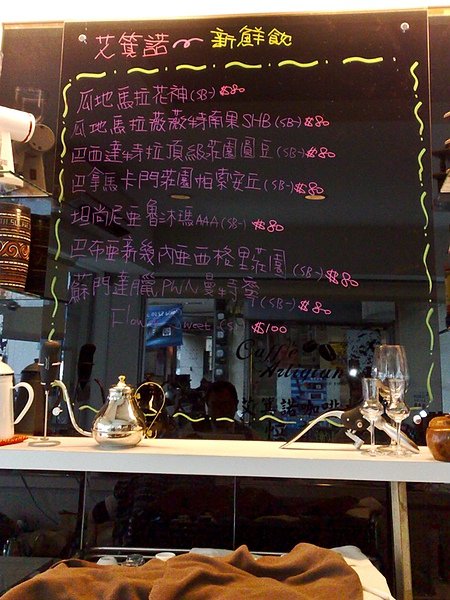 艾箕諾~新鮮飲
瓜地馬拉花神(SB-)$80
瓜地馬拉薇薇特南果SHB(SB-)$80
巴西達特拉頂級莊園圓豆(SB-)$80
巴拿馬卡門莊園帕索安丘(SB-)$80
坦尚尼亞魯沐瑪AAA(SB-)$80
巴布亞新幾內亞西格里莊園(SB-)$80
蘇門達臘PWN曼特寧(SB-)$80
Flower Sweet (S $100
Caffe
Artigian
箕諾咖啡